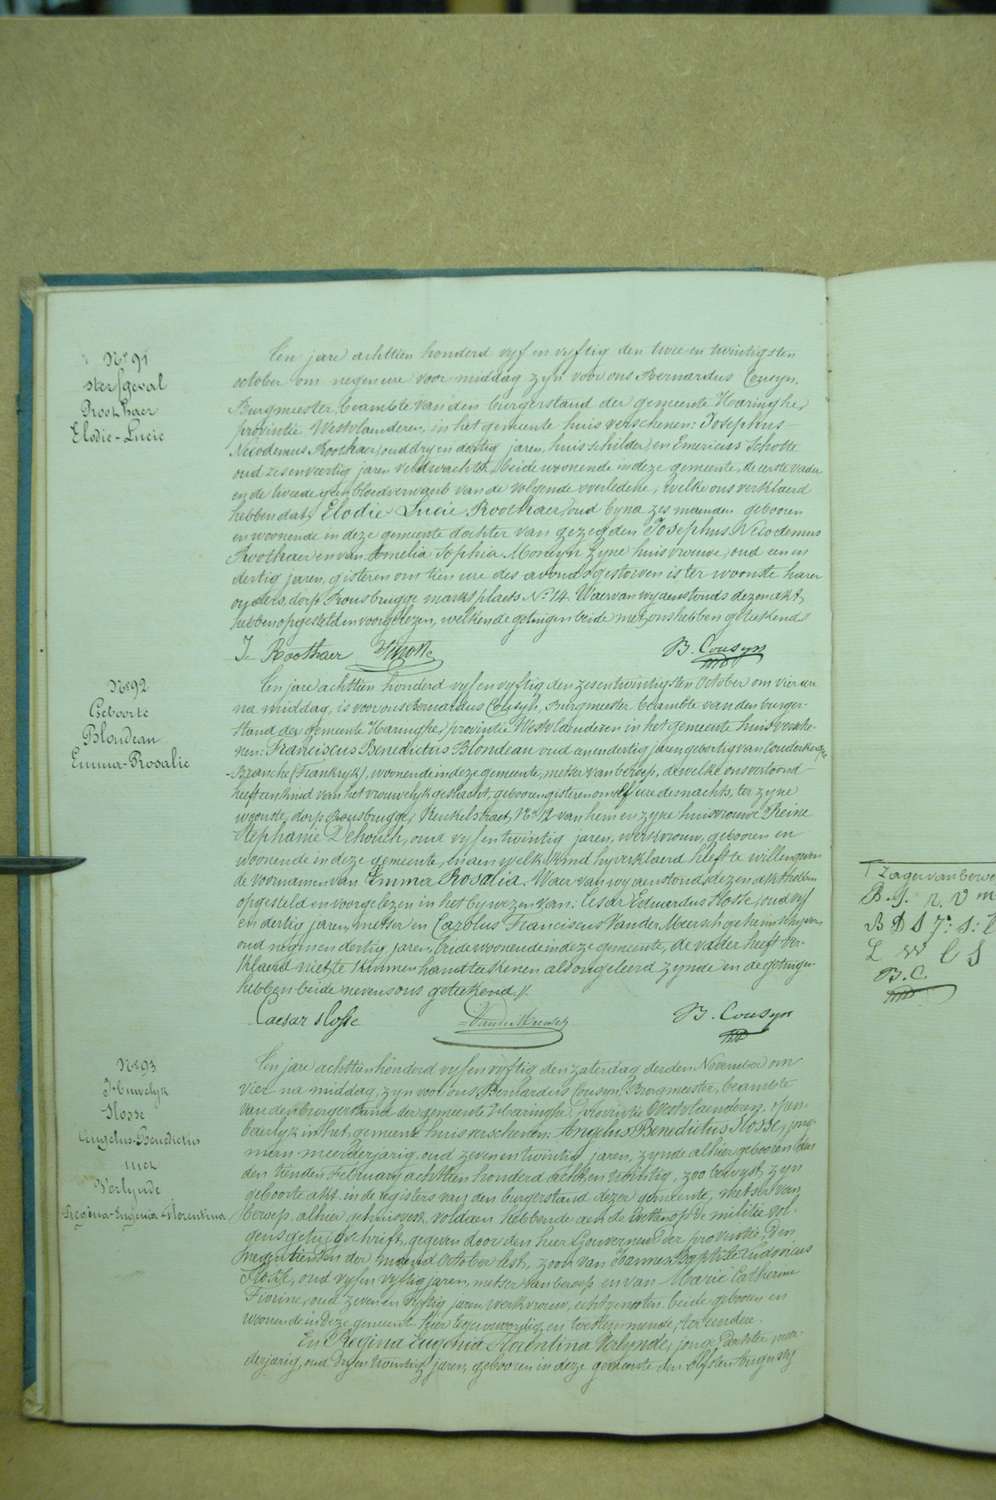 Nr 91
sterfgeval
Roothaer
Elodie-Lucie
Een jare achttien honderd vyf en vyftig den twee en twintigsten
october om negen ure voor middag zyn voor ons Bernardus Cousyn,
Burgmeester, beambte van den burgerstand der gemeente Haringhe,
provintie Westvlaenderen, in het gemeente huis verschenen: Josephus
Nicodemus Roothaer, oud dry en dertig jaren, huisschilder, en Emericus Schotte
oud zes en veertig jaren veldwachter, beide woonende in deze gemeente, de eerste vader
en de tweede geen bloedverwant van de volgende overledene, welke ons verklaerd
hebben dat, Elodie Lucie Roothaer, oud byna zes maenden geboren
en woonende in deze gemeente dochter van gezegden Josephus Nicodemus
Roothaer en van Amelia Sophia Moreyn zyne huisvrouwe, oud een en
dertig jaren, gisteren om tien ure des avonds gestorven is ter woonste harer
ouders, dorp Rousbrugge marktplaets No 14. Waervan wy aenstonds dezen akt
hebben opgesteld en voorgelezen, welken de getuigen beide met ons hebben geteekend
J. Roothaer Schotte B. Cousyn
Nr 92
Geboorte
Blondeau
Emma-Rosalie
Een jare achttien honderd vyf en vyftig den zes en twintigsten October om vier ure
na middag, is voor ons Bernardus Cousyn, Burgmeester beambte van den burger-
stand der gemeente Haringhe, provintie Westvlaenderen in het gemeente huis versche-
nen: Franciscus Benedictus Blondeau oud een en dertig jaren geboortig van Couderkerke
-Branche (Frankryk), woonende in deze gemeente, metser van beroep, dewelke ons vertoond
heeft een kind van het vrouwelyk geslacht, geboren gisteren om elf ure des nachts, ter zyne
woonste, dorp Rousbrugge, Keukelstraet, No 12 van hem en zyne huisvrouwe Reine
Stephanie Dehouck, oud vyf en twintig jaren, werkvrouw, geboren en
woonende in deze gemeente, en aen welk kind hy verklaerd heeft te willen geven
de voornamen van Emma Rosalia. Waer van wy aenstonds dezen akt hebben
opgesteld en voorgelezen in het bywezen van: Cesar Eduardus Hosse, oud vyf
en dertig jaren, metser en Carolus Franciscus Vander Meersch geheimschryver
oud negen en dertig jaren, beide woonende in deze gemeente, de vader heeft ver-
klaerd niet te kunnen handteekenen als ongeleerd zynde en de getuigen
hebben beide nevens ons geteekend //.
Caesar Hosse Vander Meersch B. Cousyn
Nr 93
Huwelyk
Hosse
Angelus-Benedictus
met
Verlynde
Regina-Eugenia-Florentina
Een jare achttien honderd vyf en vyftig den zaterdag derden November om
vier na middag, zyn voor ons Bernardus Cousyn, Burgmeester, beambte
van den burgerstand der gemeente Haringhe, provintie Westvlaenderen, open-
baerlyk in het gemeente huis verschenen: Angelus Benedictus Hosse, jong-
man meerderjarig, oud zeven en twintig jaren, zynde alhier geboren
den tienden February achttien honderd acht en twintig, zoo bewyst zyn
geboorte akt in de registers van den burgerstand dezer gemeente, metser van
beroep, alhier gehuisvest, voldaen hebbende aen de wetten op de militie vol-
gens getuigschrift, gegeven door den heer Gouverneur der provintie, den
negentienden der maend October lest, zoon van Joannes Baptiste Ludovicus
Hosse, oud vyf en vyftig jaren, metser van beroep, en van Marie Catherine
Fiorine, oud zeven en vyftig jaren werkvrouw, echtgenoten beide geboren en
woonende in deze gemeente hier tegenwoordig en toestemmende, ter eendre.
En Regina Eugenia Florentina Verlynde, jonge dochter, min-
derjarig, oud dry en twintig jaren, geboren in deze gemeente den elfsten Augusty
T Zager van beroe
B. C.